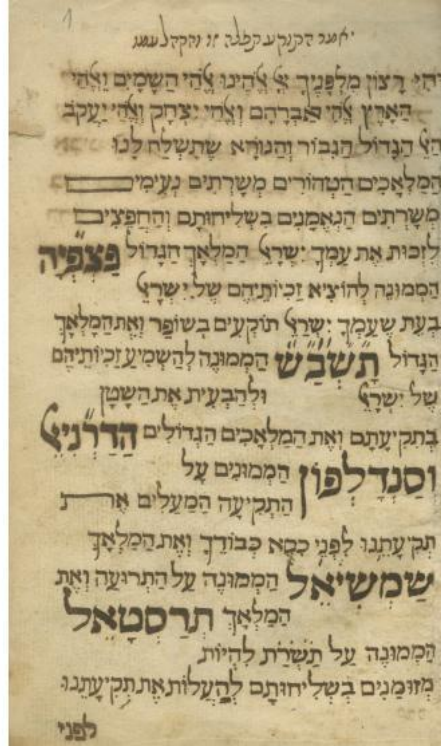 1
יאמר התוקע תפלה זו והקהל עמו
יהי רצון מלפניך יי אלהינו אלהי השמים ואלהי
הארץ אלהי אברהם ואלהי יצחק ואלהי יעקב
האל הגדול הגבור והנורא שתשלח לנו
המלאכים הטהורים משרתים נעימי
משרתים הנאמנים בשליחותם והחפצים
לזכות את עמך ישראל המלאך הגדול פצפציה
הממונה להוציא זכיותיהם של ישראל
בעת שעמך ישראל תוקעים בשופר ואת המלאך
הגדול תשבש הממונה להשמיע זכיותיהם
של ישראל ולהבעית את השטן
בתקיעתם ואת המלאכים הגדולים הדרניאל
וסנדלפון הממונים על
התקיעה המעלים את
תקיעתנו לפני כסא כבודך ואת המלאך
שמשיאל הממונה על התרועה ואת
המלאך תרסטאל
הממונה על תשרת להיות
מזומנים בשליחותם להעלות את תקיעתנו
לפני